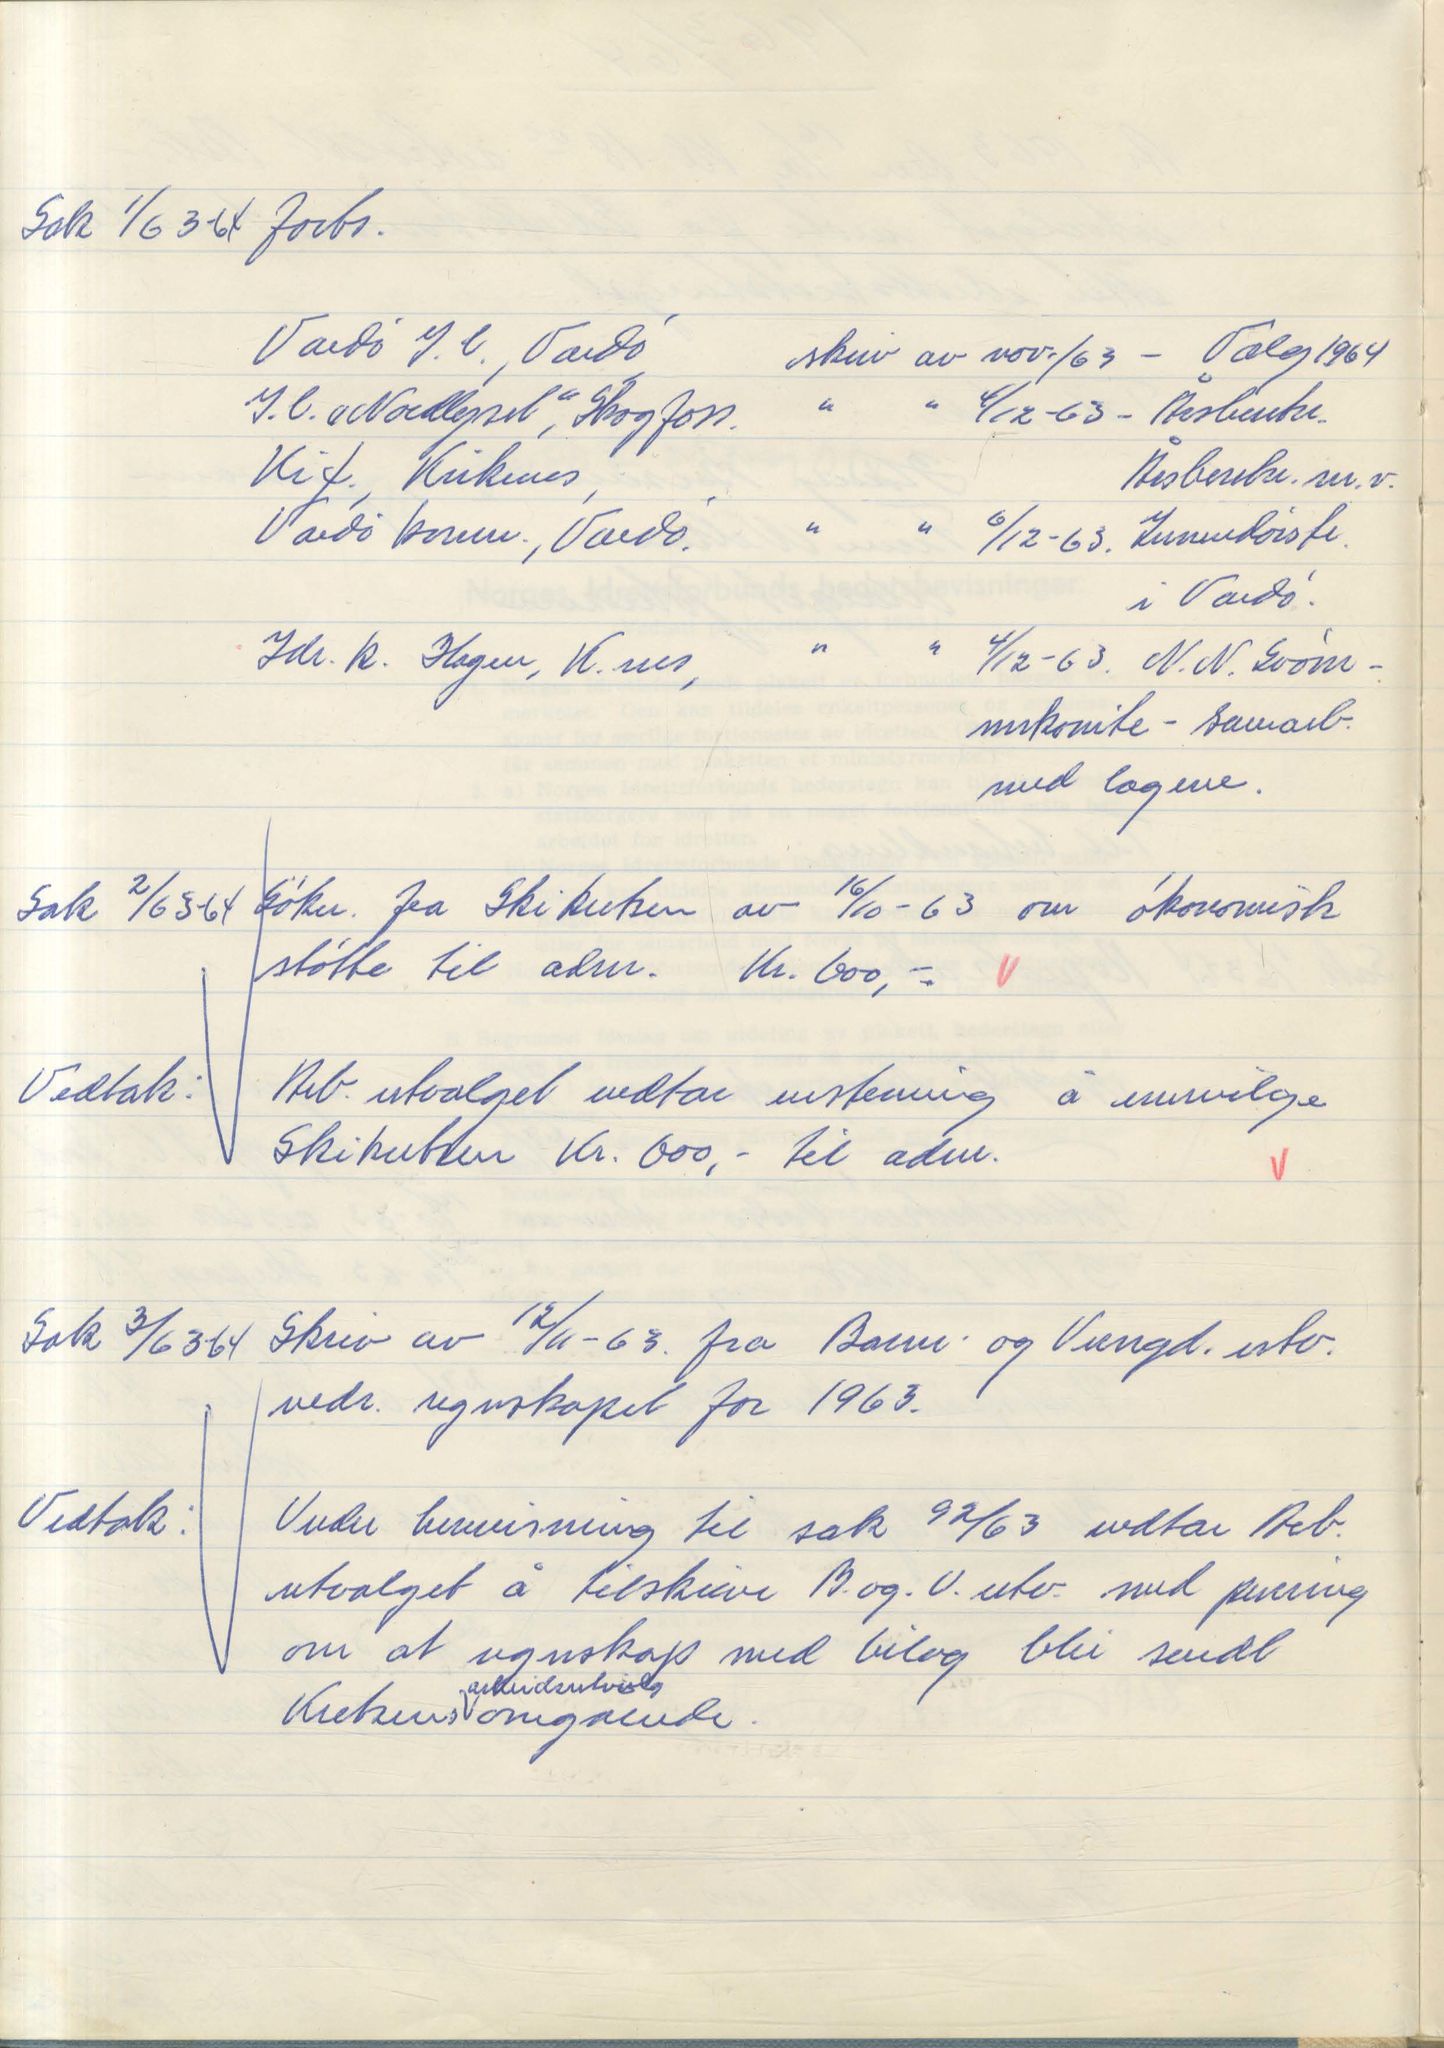 Sak 1/63-64 forts.
Vardö I.l., Vardö, skriv av nov./63 - Valg 1964
I.l. "Nordlyset", Skogfoss. " " 4/12-63 - Årsberetn.
Kif., Kirkenes, Årsberetn. m.v.
Vardö komm., Vardö. " " 6/12-63. Innendörsfr.
i Vardö.
Idr. k. Hagen, K.nes, " " 4/12-63. N.N. Svöm-
mekomite - samarb.
med lagene.
Sak 2/63-64 Sökn. fra Skikretsen av 16/10-63 om ökonomisk
stötte til adm. Kr. 600,-. V
Vedtak: Arb. utvalget vedtar innstening å innvilge
Skikretsen Kr. 600,- til adm. V
Sak 3/63-64 Skriv av 12/11-63. fra Barne- og Ungd. utv.
vedr. regnskapet for 1963.
Vedtak: Under henvisning til sak 92/63 vedtar Arb.
utvalget å tilskrive B. og. U. utv. med purring
om at regnskap med bilag blir sendt
arbeidsutvalg
Kretsens omgående.